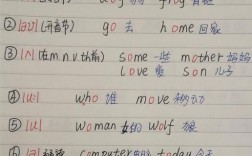 ② [əʊ] (开音节) go 去 home 回家
③ [ʌ] (在m.n.v.th前) some 一些 mother 妈妈
love 爱 son 儿子
④ [uː] who 谁 move 移动
⑤ [u] woman 女的 wolf 狼
computer today 今天